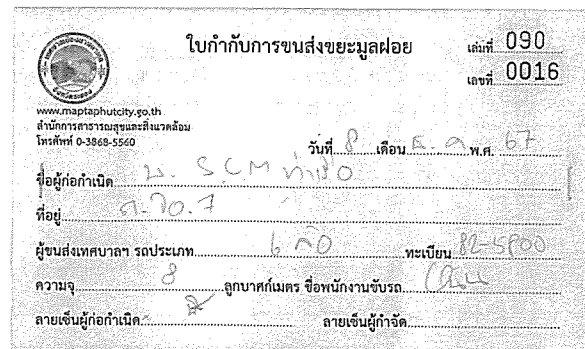 ใบกำกับการขนส่งขยะมูลฝอย
เล่มที่ 090
เลขที่ 0016
www.maptaphutcity.go.th
สำนักการสาธารณสุขและสิ่งแวดล้อม
โทรศัพท์ 0-3868-5560
วันที่ 8 เดือน ธ.ค พ.ศ. 67
ชื่อผู้ก่อกำเนิด บ. SCM ท่าเรือ
ที่อยู่
ผู้ขนส่งเทศบาลฯ รถประเภท 6 ล้อ ทะเบียน 82-5900
ความจุ 8 ลูกบาศก์เมตร ชื่อพนักงานขับรถ
ลายเซ็นผู้ก่อกำเนิด ลายเซ็นผู้กำจัด